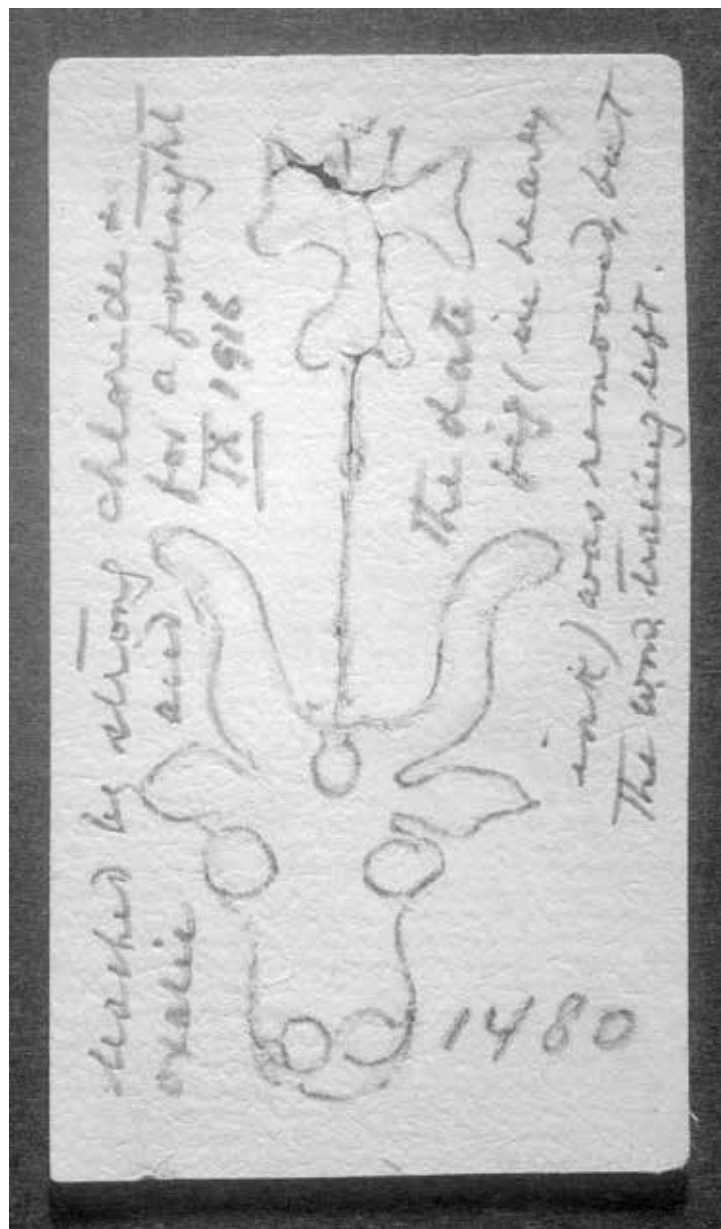 bleached by strong chloride &
oxalic acid for a fortnight
IX 1916
The date
big (in heavy
ink) was removed, but
The wmk. tracing left.
1480